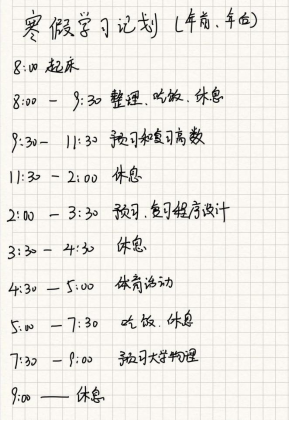 寒假学习记划 (年前、年后)
8:00 起床
8:00 — 9:30 整理、吃饭、休息
9:30 — 11:30 预习和复习高数
11:30 — 2:00 休息
2:00 — 3:30 预习、复习程序设计
3:30 — 4:30 休息
4:30 — 5:00 体育活动
5:00 — 7:30 吃饭、休息
7:30 — 9:00 预习大学物理
9:00 —— 休息